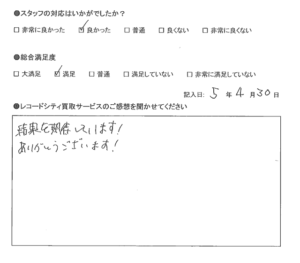 ●スタッフの対応はいかがでしたか？
□ 非常に良かった ☑ 良かった □ 普通 □ 良くない □ 非常に良くない
●総合満足度
□ 大満足 ☑ 満足 □ 普通 □ 満足していない □ 非常に満足していない
記入日: 5 年 4 月 30 日
●レコードシティ買取サービスのご感想を聞かせてください
結果を期待しています!
ありがとうございます!